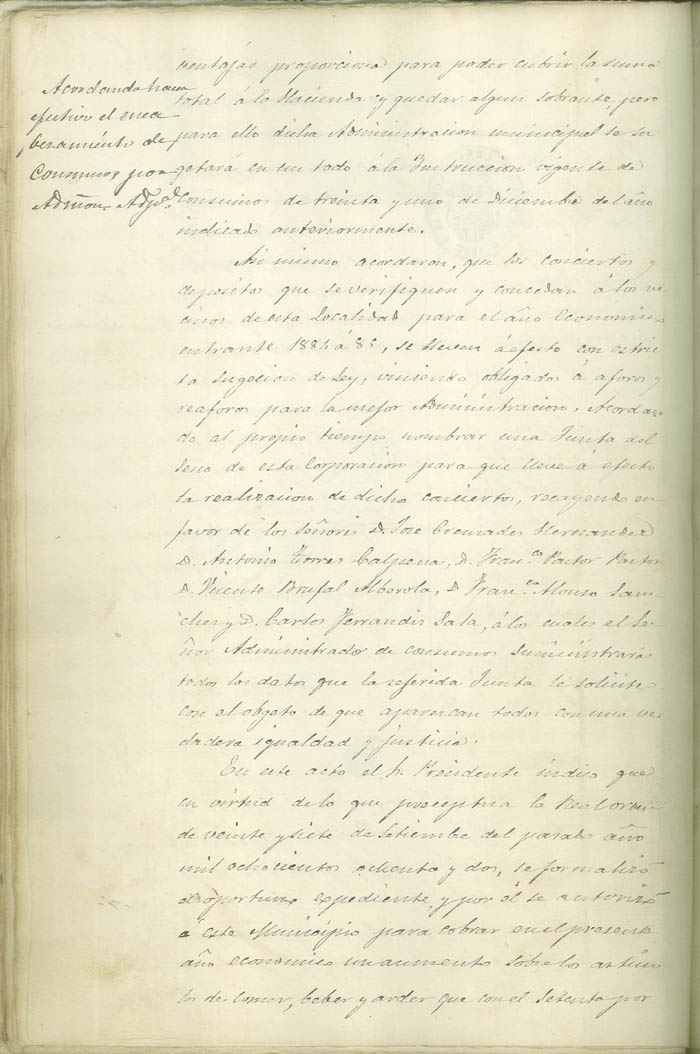 Acordando hacer
efectivo el enca
bezamiento de
Consumos por
Admon. Adm.al
ventajas proporciona para poder cubrir la suma
total á la Hacienda y quedar algun sobrante, pero
para ello dicha Administracion municipal se su
getará en un todo á la Instruccion vigente de
Consumos de treinta y uno de Diciembre del año
indicado anteriormente.
Asi mismo acordaron, que los conciertos y
depositos que se verifiquen y concedan á los ve
cinos de esta Localidad para el año Economico
entrante 1884 á 85, se lleven á efecto con estric
ta sugecion de Ley, viniendo obligados á aforos y
reaforos para la mejor Administracion. Acordan
do al propio tiempo nombrar una Junta del
seno de esta Corporacion para que lleve á efecto
la realizacion de dicho conciertos, recayendo en
favor de los Señores D. Jose Cremades Hernandez
D. Antonio Torres Calpena, D. Fran.co Pastor Pastor
D. Vicente Brufal Alberola, D. Fran.co Alonso San
chez y D. Carlos Ferrandis Sala, á los cuales el Se
ñor Administrador de consumos suministrará
todos los datos que la referida Junta le solicite
con el objeto de que aparescan todos con una ver
dadera igualdad y justicia.
En este acto el Sr. Presidente indicó que
en virtud de lo que preceptua la Real orden
de veinte y siete de Setiembre del pasado año
mil ochocientos ochenta y dos, se formalizó
el oportuno expediente, y por él se autorizó
á este Municipio para cobrar en el presente
año economico un aumento sobre los articu
los de comer, beber y arder que con el setenta por